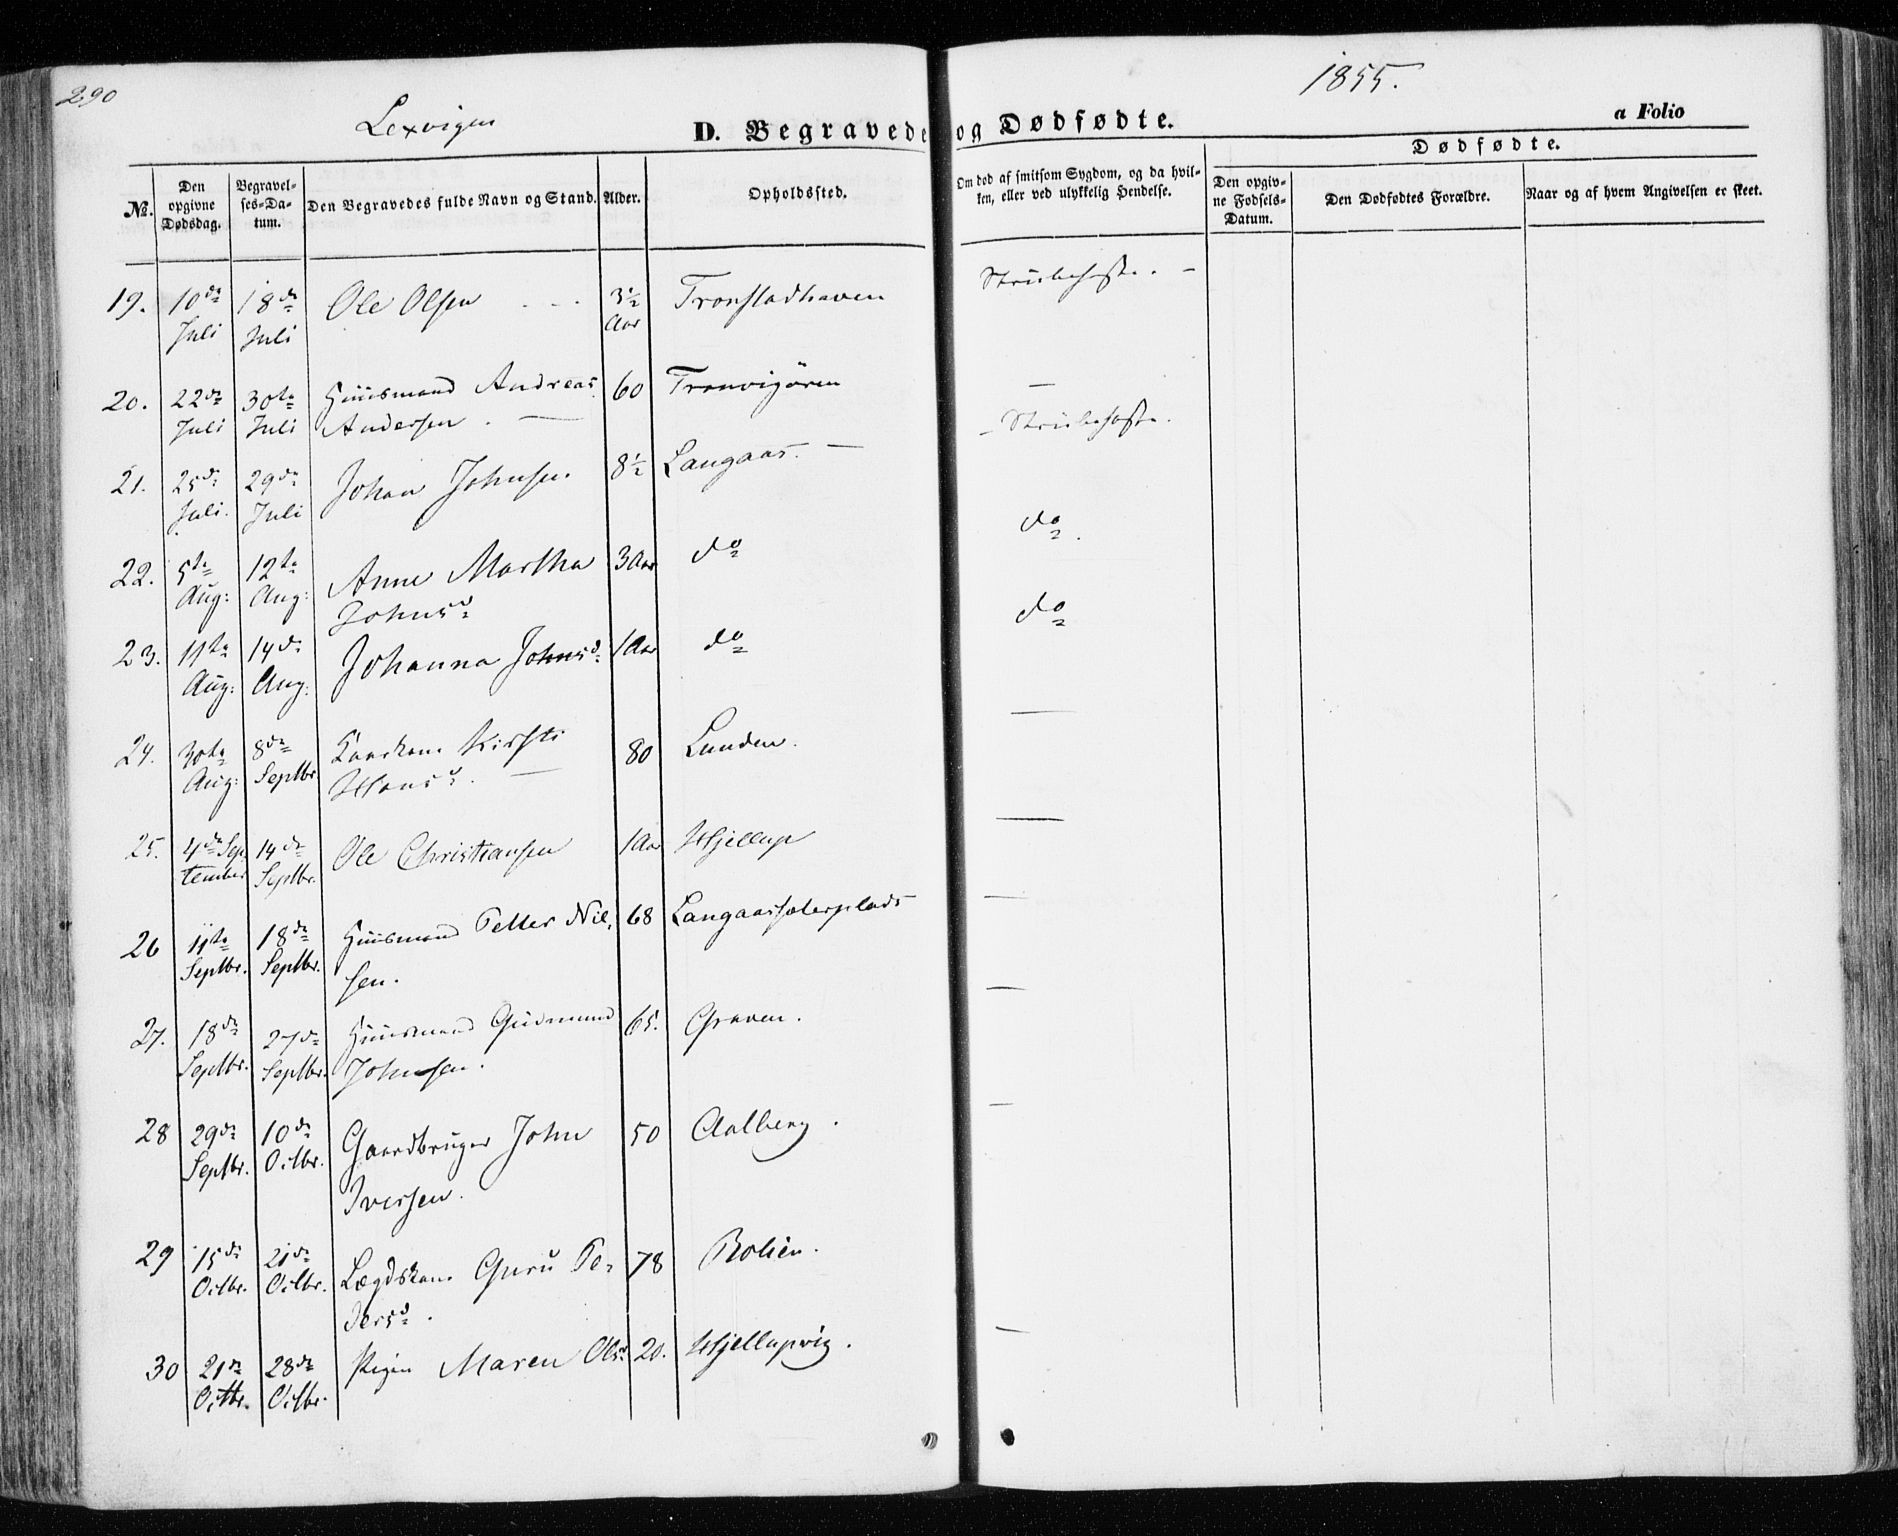 290
Lexvigen
1855.
D. Begravede og Dødfødte.
a Folio
Dødfødte.
No.
Den opgivne Dødsdag.
Begravelses-Datum.
Den Begravedes fulde Navn og Stand.
Alder.
Opholdssted.
Om død af smitsom Sygdom, og da hvilken, eller ved ulykkelig Hendelse.
Den opgivne Fødsels-Datum.
Den Dødfødtes Forældre.
Naar og af hvem Angivelsen er skeet.
19. 10de Juli 18de Juli Ole Olsen 3½ Aar Tronstadhaven Strubehoste. -
20. 22de Juli 30te Juli Huusmand Andreas Andersen . — 60 Tronvigören —
21. 25de Juli. 29de Juli Johan Johnsen. 8½ Langaas. — - Strubehoste.
22. 5te Aug: 12te Aug: Anne Martha Johnsd 3 Aar do do.
23. 11te Aug: 14de Aug: Johanna Johnsd 1 Aar do do
24. 30te Aug: 8de Septbr. Kirsti Hansd. — 80 Lunden. —
25. 4de September 14de Septbr. Ole Christiansen 1 Aar Hjellup —
26 11te Septbr. 18de Septbr. Huusmand Petter Nilsen. 68 Langaassæterplads —
27. 18de Septbr. 27de Septbr. Huusmand Gudmund Johnsen. 65. Graven. —
28 29de Septbr. 10de Octbr. Gaardbruger John Iversen. 50 Aalberg. —
29 15de Octbr. 21de Octbr. Lægdskone Guru Pedersd. 78 Rolien.
30 21de Octbr. 28de Octbr. Pigen Maren Olsd 20. Hjellupvig. —